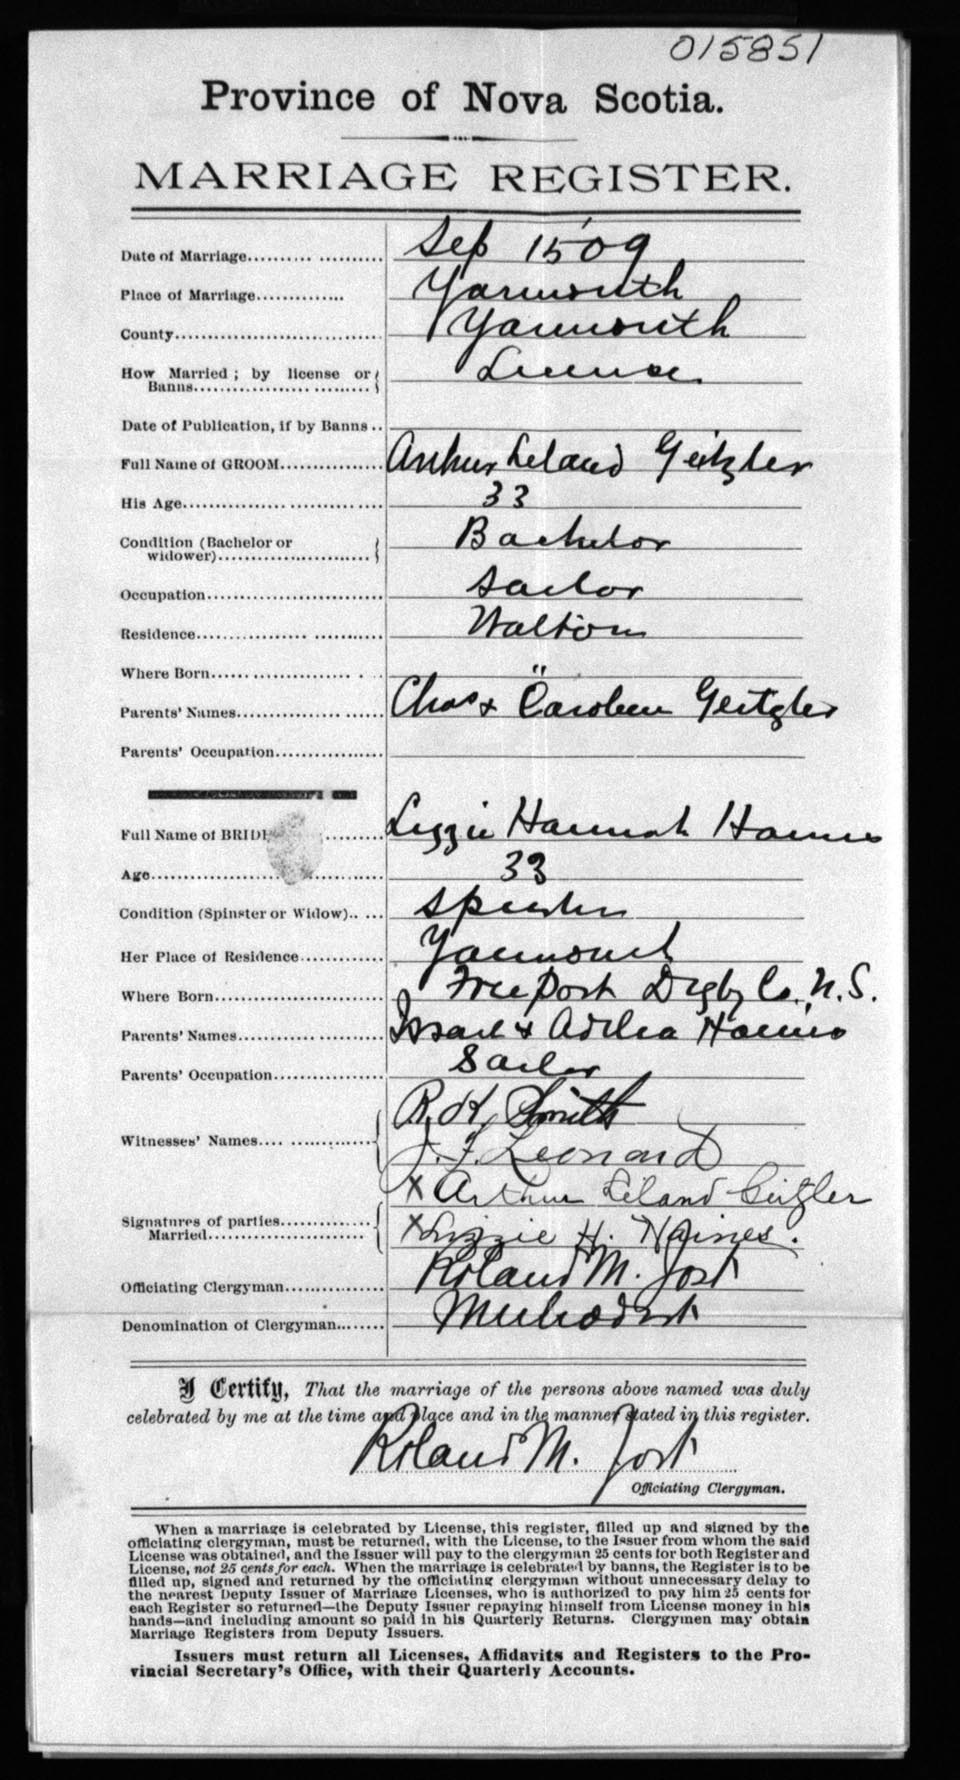 015851
Province of Nova Scotia.
MARRIAGE REGISTER.
Date of Marriage Sep 15 '09
Place of Marriage Yarmouth
County Yarmouth
How Married ; by license or Banns License
Date of Publication, if by Banns
Full Name of GROOM Arthur Leland Geitzler
His Age 33
Condition (Bachelor or widower) Bachelor
Occupation Sailor
Residence Walton
Where Born "
Parents' Names Chas & Caroleen Geitzler
Parents' Occupation
Full Name of BRIDE Lizzie Hannah Haines
Age 33
Condition (Spinster or Widow) Spinster
Her Place of Residence Yarmouth
Where Born Freeport Digby Co. N.S.
Parents' Names Israel & Adelia Haines
Parents' Occupation Sailor
Witnesses' Names R. H. Smith
J. F. Leonard
Signatures of parties Married X Arthur Leland Geitzler
X Lizzie H. Haines.
Officiating Clergyman Roland M. Jost
Denomination of Clergyman Methodist
I Certify, That the marriage of the persons above named was duly
celebrated by me at the time and place and in the manner stated in this register.
Roland M. Jost
Officiating Clergyman.
When a marriage is celebrated by License, this register, filled up and signed by the
officiating clergyman, must be returned, with the License, to the Issuer from whom the said
License was obtained, and the Issuer will pay to the clergyman 25 cents for both Register and
License, not 25 cents for each. When the marriage is celebrated by banns, the Register is to be
filled up, signed and returned by the officiating clergyman without unnecessary delay to
the nearest Deputy Issuer of Marriage Licenses, who is authorized to pay him 25 cents for
each Register so returned—the Deputy Issuer repaying himself from License money in his
hands—and including amount so paid in his Quarterly Returns. Clergymen may obtain
Marriage Registers from Deputy Issuers.
Issuers must return all Licenses, Affidavits and Registers to the Pro-
vincial Secretary's Office, with their Quarterly Accounts.